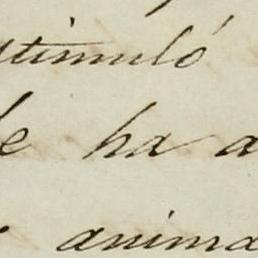 stimuló
le ha a
anima